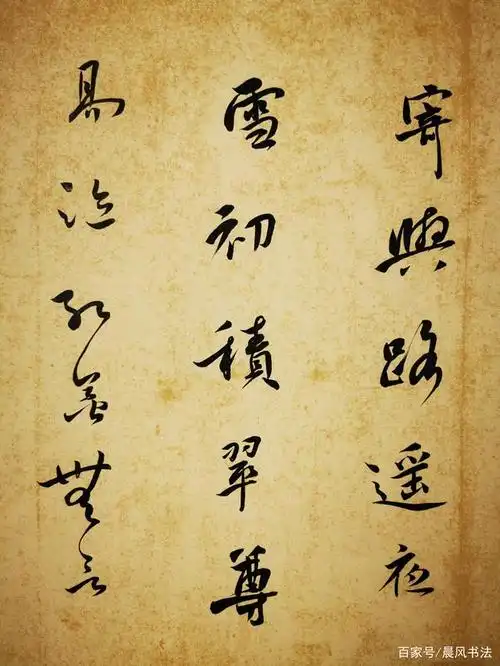 寄與路遥夜
雪初積翠尊
易泣紅萼無言
百家号/晨风书法